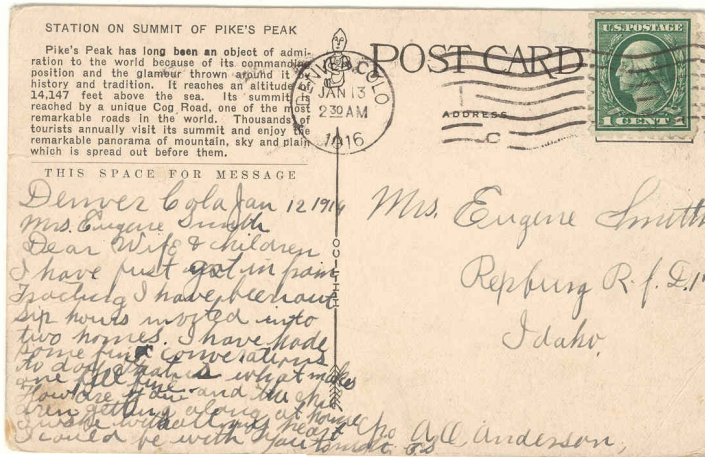 STATION ON SUMMIT OF PIKE'S PEAK
Pike's Peak has long been an object of admi-
ration to the world because of its commanding
position and the glamour thrown around it by
history and tradition. It reaches an altitude of
14,147 feet above the sea. Its summit is
reached by a unique Cog Road, one of the most
remarkable roads in the world. Thousands of
tourists annually visit its summit and enjoy the
remarkable panorama of mountain, sky and plain
which is spread out before them.
THIS SPACE FOR MESSAGE
Denver Colo Jan 12 1916
Mrs. Eugene Smith
Dear Wife & children
I have just got in from
Tracting I have been out
six hours invited into
two homes. I have hade
some fine conversations
to day that is what makes
one feel fine.
How are you and the
getting along at home
I wish with all my heart
I could be with you
H-H-T-CO
POST CARD
DENVER, COLO
JAN 13
2 30 AM
1916
ADDRESS
U.S. POSTAGE
1 CENT 1
Mrs. Eugene Smith
Rexburg R.f.D.1
Idaho,
A.C. Anderson,